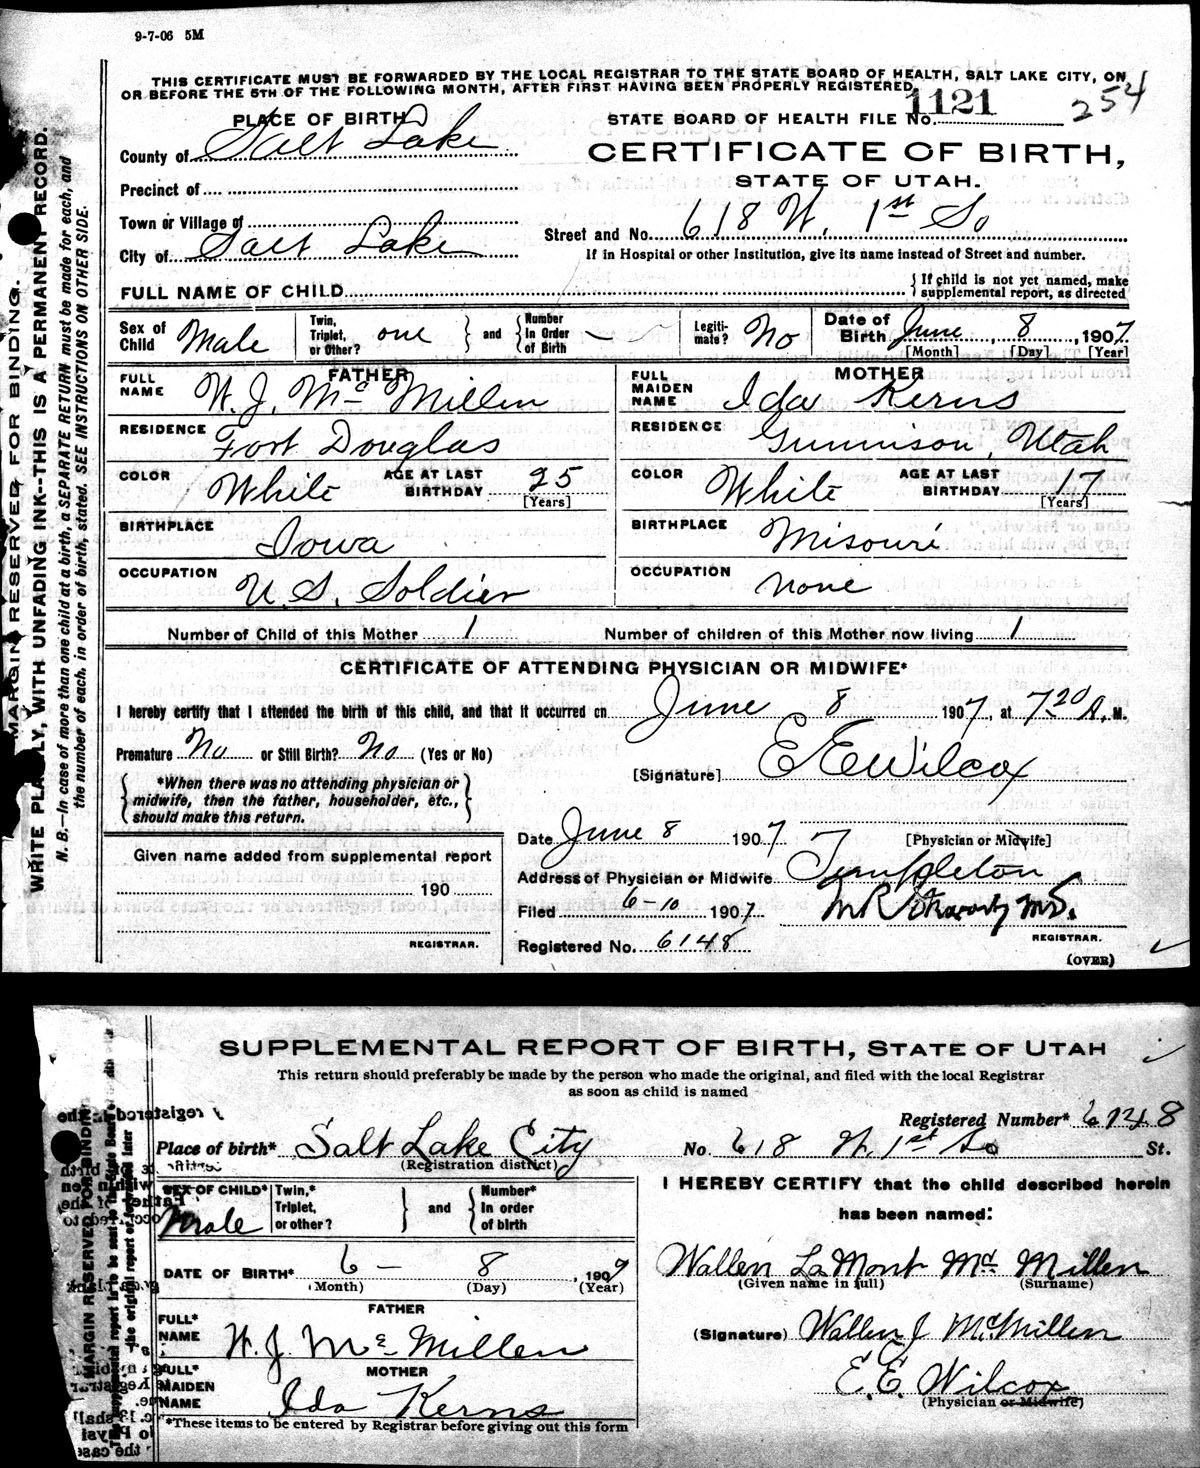 9-7-06 5M
THIS CERTIFICATE MUST BE FORWARDED BY THE LOCAL REGISTRAR TO THE STATE BOARD OF HEALTH, SALT LAKE CITY, ON
OR BEFORE THE 5TH OF THE FOLLOWING MONTH, AFTER FIRST HAVING BEEN PROPERLY REGISTERED
1121
254
PLACE OF BIRTH
STATE BOARD OF HEALTH FILE No.
County of Salt Lake
CERTIFICATE OF BIRTH,
STATE OF UTAH.
Precinct of
Town or Village of
Street and No. 618 W. 1st So
City of Salt Lake
If in Hospital or other Institution, give its name instead of Street and number.
FULL NAME OF CHILD
If child is not yet named, make supplemental report, as directed
Sex of Child Male
Twin, Triplet, or Other? one and Number in Order of Birth —
Legitimate? No
Date of Birth June 8, 1907
[Month] [Day] [Year]
FATHER
FULL NAME W. J. Mc Millen
RESIDENCE Fort Douglas
COLOR White AGE AT LAST BIRTHDAY 25
[Years]
BIRTHPLACE Iowa
OCCUPATION U. S. Soldier
MOTHER
FULL MAIDEN NAME Ida Kerns
RESIDENCE Gunnison, Utah
COLOR White AGE AT LAST BIRTHDAY 17
[Years]
BIRTHPLACE Misouri
OCCUPATION none
Number of Child of this Mother 1 Number of children of this Mother now living 1
CERTIFICATE OF ATTENDING PHYSICIAN OR MIDWIFE*
I hereby certify that I attended the birth of this child, and that it occurred on June 8 1907, at 7 20 A. M.
Premature No or Still Birth? No (Yes or No)
[Signature] E E Wilcox
*When there was no attending physician or
midwife, then the father, householder, etc.,
should make this return.
Date June 8 1907
[Physician or Midwife]
Given name added from supplemental report
190
REGISTRAR.
Address of Physician or Midwife Templeton
Filed 6-10 1907
Registered No. 6148
REGISTRAR.
(OVER)
MARGIN RESERVED FOR BINDING.
WRITE PLAINLY, WITH UNFADING INK--THIS IS A PERMANENT RECORD.
N. B.—In case of more than one child at a birth, a SEPARATE RETURN must be made for each, and
the number of each, in order of birth, stated. SEE INSTRUCTIONS ON OTHER SIDE.
SUPPLEMENTAL REPORT OF BIRTH, STATE OF UTAH
This return should preferably be made by the person who made the original, and filed with the local Registrar
as soon as child is named
Registered Number* 6148
Place of birth* Salt Lake City No. 618 W. 1st So St.
(Registration district)
SEX OF CHILD* Male
Twin,* Triplet, or other? and Number* in order of birth
I HEREBY CERTIFY that the child described herein
has been named:
DATE OF BIRTH* 6 — 8, 1907
(Month) (Day) (Year)
Wallen LaMont Mc Millen
(Given name in full) (Surname)
FATHER
FULL* NAME W. J. Mc Millen
(Signature) Wallen J McMillen
MOTHER
FULL* MAIDEN NAME Ida Kerns
E. E. Wilcox
(Physician or Midwife)
*These items to be entered by Registrar before giving out this form
MARGIN RESERVED FOR BINDING